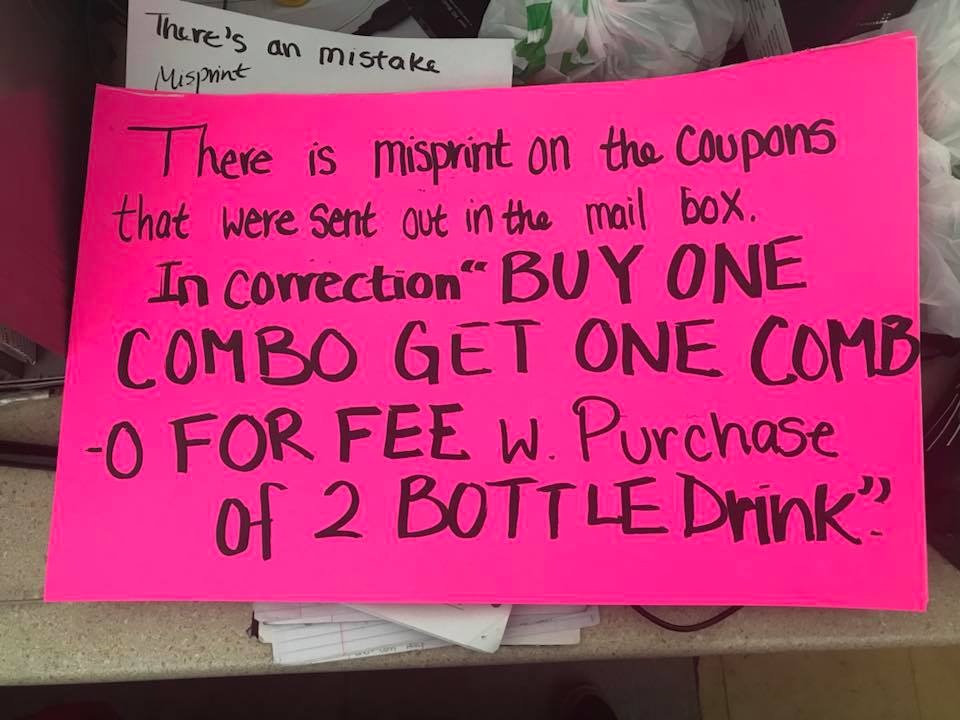 There's an mistake
Misprint
There is misprint on the Coupons
that were sent out in the mail box.
In correction "BUY ONE
COMBO GET ONE COMB
-O FOR FEE W. Purchase
of 2 BOTTLE Drink".